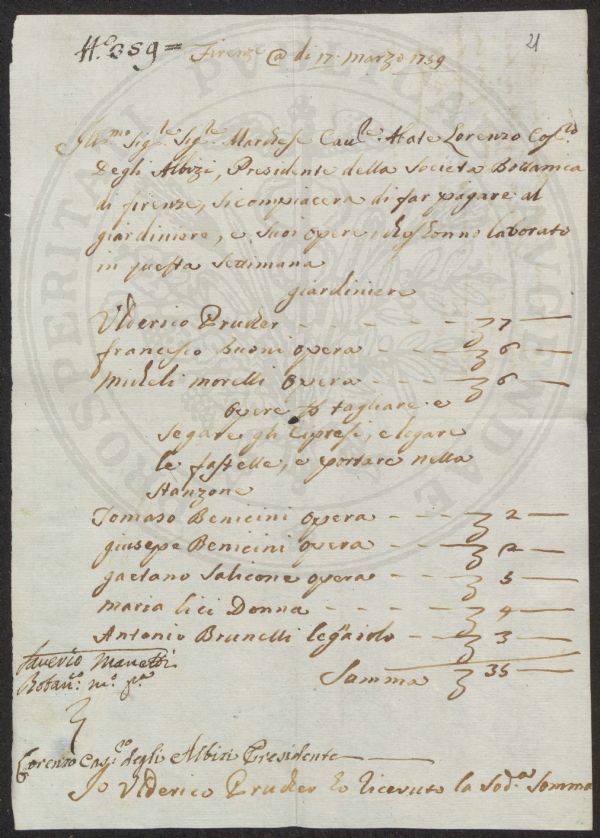 N.º 359 =
Firenze @ di 17 Marzo 1759
21
Ill:mo Sig:re Sig:re Marchese Cau:re Abate Lorenzo
Degli Albizi, Presidente della Società Bottanica
di firenze, si compiacerà di far pagare al
giardiniere, e suoi opere, che onno laborato
in questa settimana
giardiniere
Ulderico Prucker - - - - - - 7 —
francesco Buoni opera - - - - 6 —
Micheli morelli opera - - - - 6 —
Opere p tagliare e
Segare gli Cipresi, e legare
le fastelle, e portare nella
Stanzone
Tomaso Benicini opera - - - 2 —
giusepe Benicini opera - - - 2 —
gaetano Salicone opera - - - 5 —
maria lici Donna - - - - 4 —
Antonio Brunelli legaiolo - - 3 —
Saverio Manetti
Botan:co m:o p:a
Summa 35 —
Lorenzo Gas:ro degli Albizi Presidente
Io Ulderico Prucker ho ricevuto la Sod:a Somma
PROSPERITATI PVBLICAE AVGENDAE